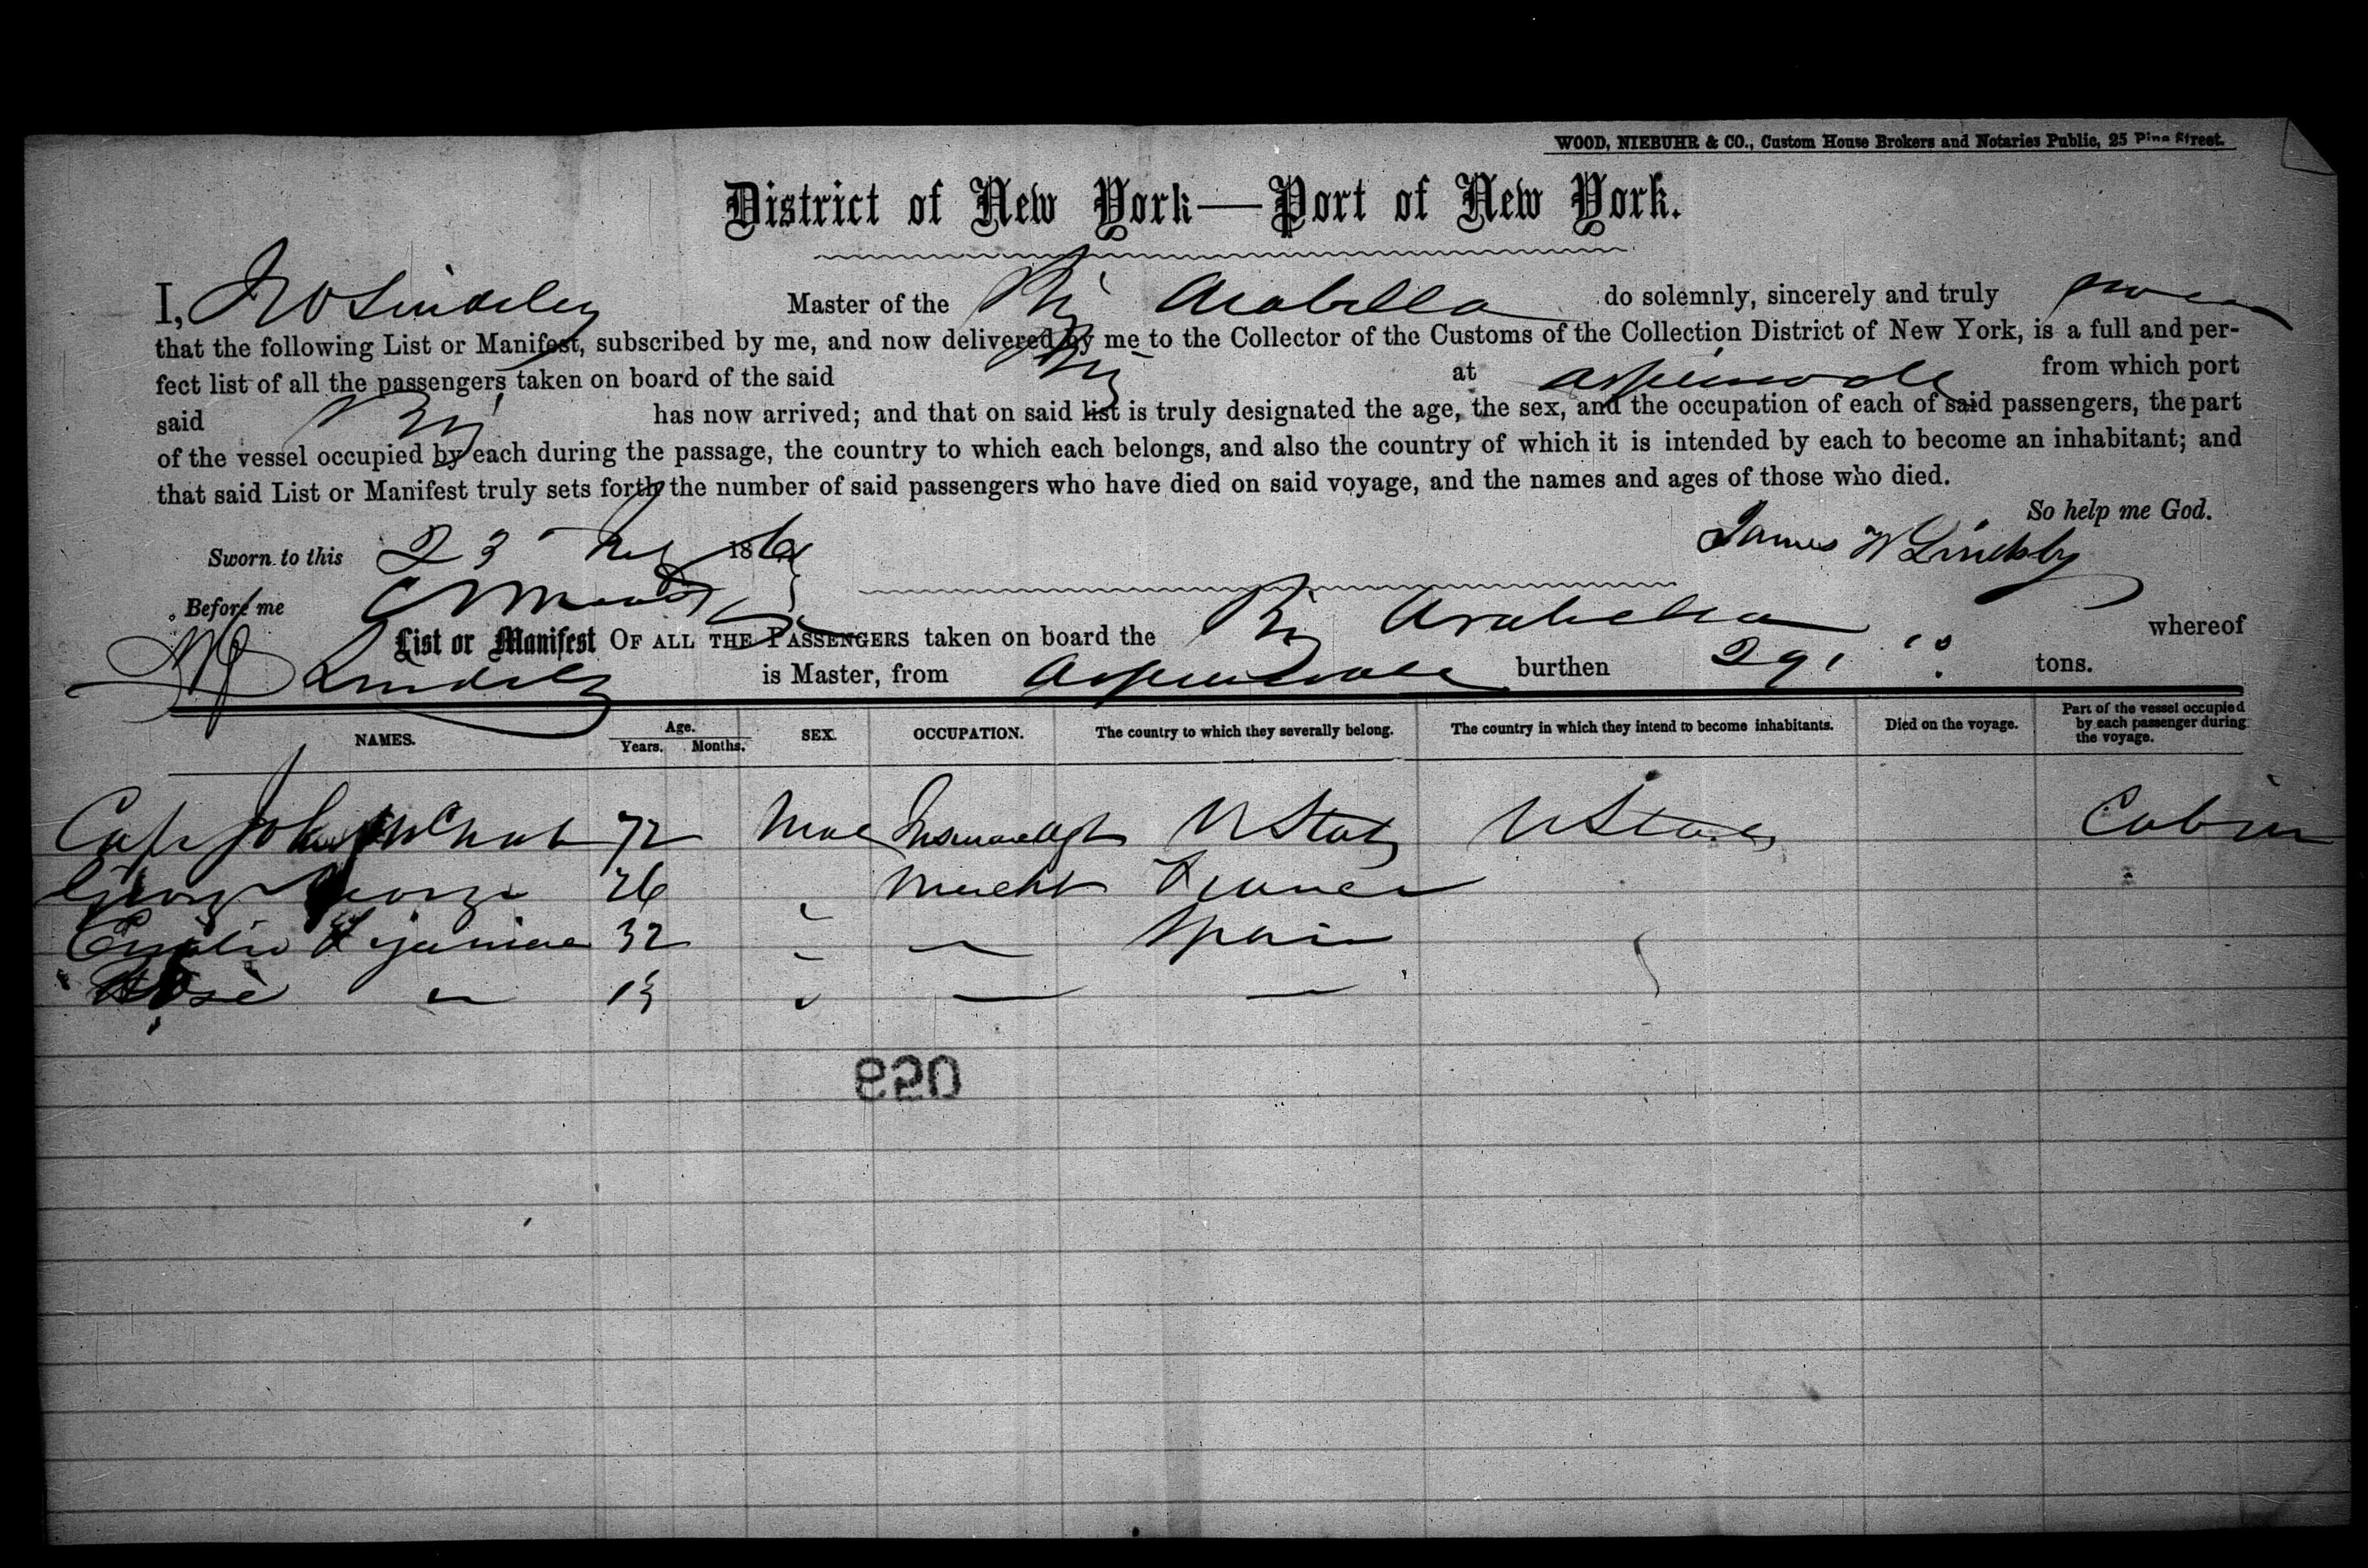 WOOD, NIEBUHR & CO., Custom House Brokers and Notaries Public, 25 Pine Street.
District of New York—Port of New York.
I, J W Lindsley Master of the Brig Arabella do solemnly, sincerely and truly swear
that the following List or Manifest, subscribed by me, and now delivered by me to the Collector of the Customs of the Collection District of New York, is a full and per-
fect list of all the passengers taken on board of the said Brig at Aspinwall from which port
said Brig has now arrived; and that on said list is truly designated the age, the sex, and the occupation of each of said passengers, the part
of the vessel occupied by each during the passage, the country to which each belongs, and also the country of which it is intended by each to become an inhabitant; and
that said List or Manifest truly sets forth the number of said passengers who have died on said voyage, and the names and ages of those who died.
So help me God.
Sworn to this 23 186 James W Lindsley
Before me
List or Manifest OF ALL THE PASSENGERS taken on board the Brig Arabella whereof
J W Lindsley is Master, from Aspinwall burthen 291 tons.
NAMES. Age. Years. Months. SEX. OCCUPATION. The country to which they severally belong. The country in which they intend to become inhabitants. Died on the voyage. Part of the vessel occupied by each passenger during the voyage.
Capt John 72 Male U States U States Cabin
George 26 Mercht France
Emilio 32 " Spain
Jose " 13 "
059